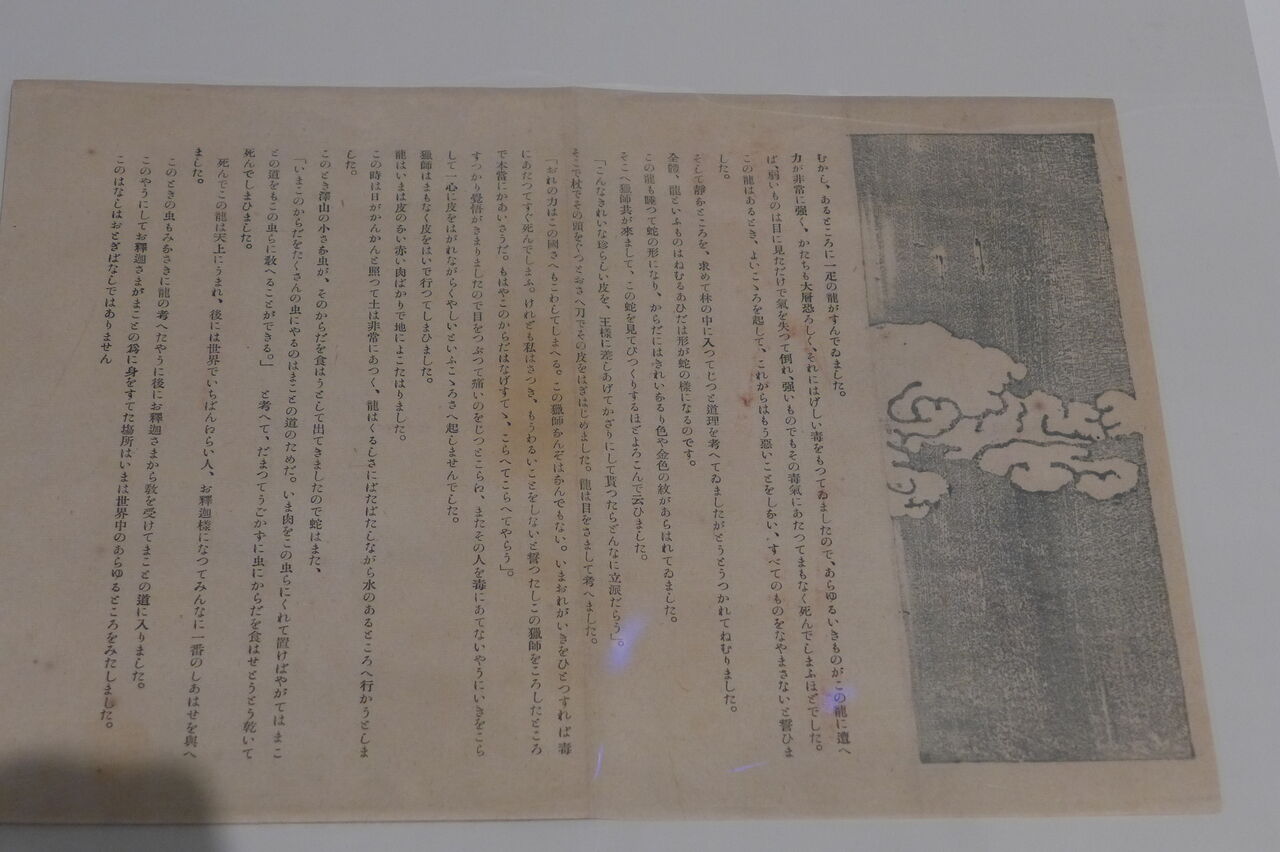 むかし、あるところに一疋の龍がすんでゐました。
力が非常に強く、かたちも大層恐ろしく、それにはげしい毒をもつてゐましたので、あらゆるいきものがこの龍に遭へ
ば、弱いものは目に見ただけで氣を失つて倒れ、强いものでもその毒氣にあたつてまもなく死んでしまふほどでした。
この龍はあるとき、よいこゝろを起して、これからはもう惡いことをしない、すべてのものをなやまさないと誓ひま
した。
そして靜なところを、求めて林の中に入つてじつと道理を考へてゐましたがとうとうつかれてねむりました。
全體、龍といふものはねむるあひだは形が蛇の樣になるのです。
この龍も睡つて蛇の形になり、からだにはきれいなるり色や金色の紋があらはれてゐました。
そこへ獵師共が來まして、この蛇を見てびつくりするほどよろこんで云ひました。
「こんなきれいな珍らしい皮を、王樣に差しあげてかざりにして貰つたらどんなに立派だらう」。
そこで杖でその頭をぐつとおさへ刀でその皮をはぎはじめました。龍は目をさまして考へました。
「おれの力はこの國さへもこわしてしまへる。この獵師なんぞはなんでもない。いまおれがいきをひとつすれば毒
にあたつてすぐ死んでしまふ。けれども私はさつき、もうわるいことをしないと誓つたしこの獵師をころしたところ
で本當にかあいさうだ。もはやこのからだはなげすてゝ、こらへてこらへてやらう」。
すつかり覺悟がきまりましたので目をつぶつて痛いのをじつとこらへ、またその人を毒にあてないやうにいきをこら
して一心に皮をはがれながらくやしいといふこゝろさへ起しませんでした。
獵師はまもなく皮をはいで行つてしまひました。
龍はいまは皮のない赤い肉ばかりで地によこたはりました。
この時は日がかんかんと照つて土は非常にあつく、龍はくるしさにばたばたしながら水のあるところへ行かうとしま
した。
このとき澤山の小さな虫が、そのからだを食はうとして出てきましたので蛇はまた、
「いまこのからだをたくさんの虫にやるのはまことの道のためだ。いま肉をこの虫らにくれて置けばやがてはまこ
との道をもこの虫らに敎へることができる。」 と考へて、だまつてうごかずに虫にからだを食はせとうとう乾いて
死んでしまひました。
死んでこの龍は天上にうまれ、後には世界でいちばんえらい人、お釋迦樣になつてみんなに一番のしあはせを與へ
ました。
このときの虫もみなさきに龍の考へたやうに後にお釋迦さまから敎を受けてまことの道に入りました。
このやうにしてお釋迦さまがまことの爲に身をすてた場所はいまは世界中のあらゆるところをみたしました。
このはなしはおとぎばなしではありません